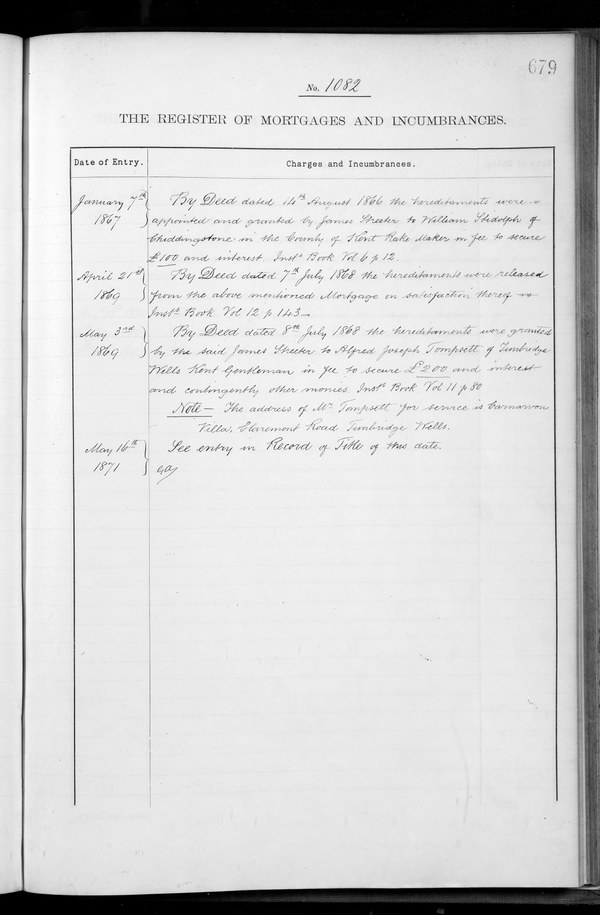 679
No. 1082
THE REGISTER OF MORTGAGES AND INCUMBRANCES.
Date of Entry. Charges and Incumbrances.
January 7th By Deed dated 14th August 1866 the hereditaments were
1867 appointed and granted by James Streeter to William Stidolph of
Chiddingstone in the County of Kent Rake Maker in fee to secure
£100 and interest. Instt Book Vol 6 p 12.
April 21st By Deed dated 7th July 1868 the hereditaments were released
1869 from the above mentioned Mortgage on satisfaction thereof
Instt Book Vol 12 p 143
May 3rd By Deed dated 8th July 1868 the hereditaments were granted
1869 by the said James Streeter to Alfred Joseph Tompsett of Tunbridge
Wells Kent Gentleman in fee to secure £200 and interest
and contingently other monies. Instt Book Vol 11 p 80
Note — The address of Mr Tompsett for service is Carnarvon
Villa, Claremont Road Tunbridge Wells.
May 16th See entry in Record of Title of this date.
1871